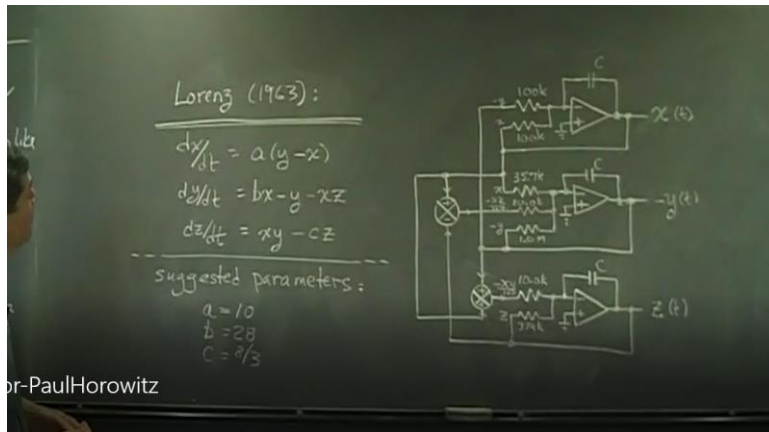 like
Lorenz (1963):
dx/dt = a(y-x)
dy/dt = bx-y-xz
dz/dt = xy-cz
suggested parameters:
a=10
b=28
c=8/3
C
-y
100k
x
100k
x(t)
C
x
35.7k
10.0k
-y
1.0M
-y(t)
C
10.0k
z
374k
z(t)
or-PaulHorowitz